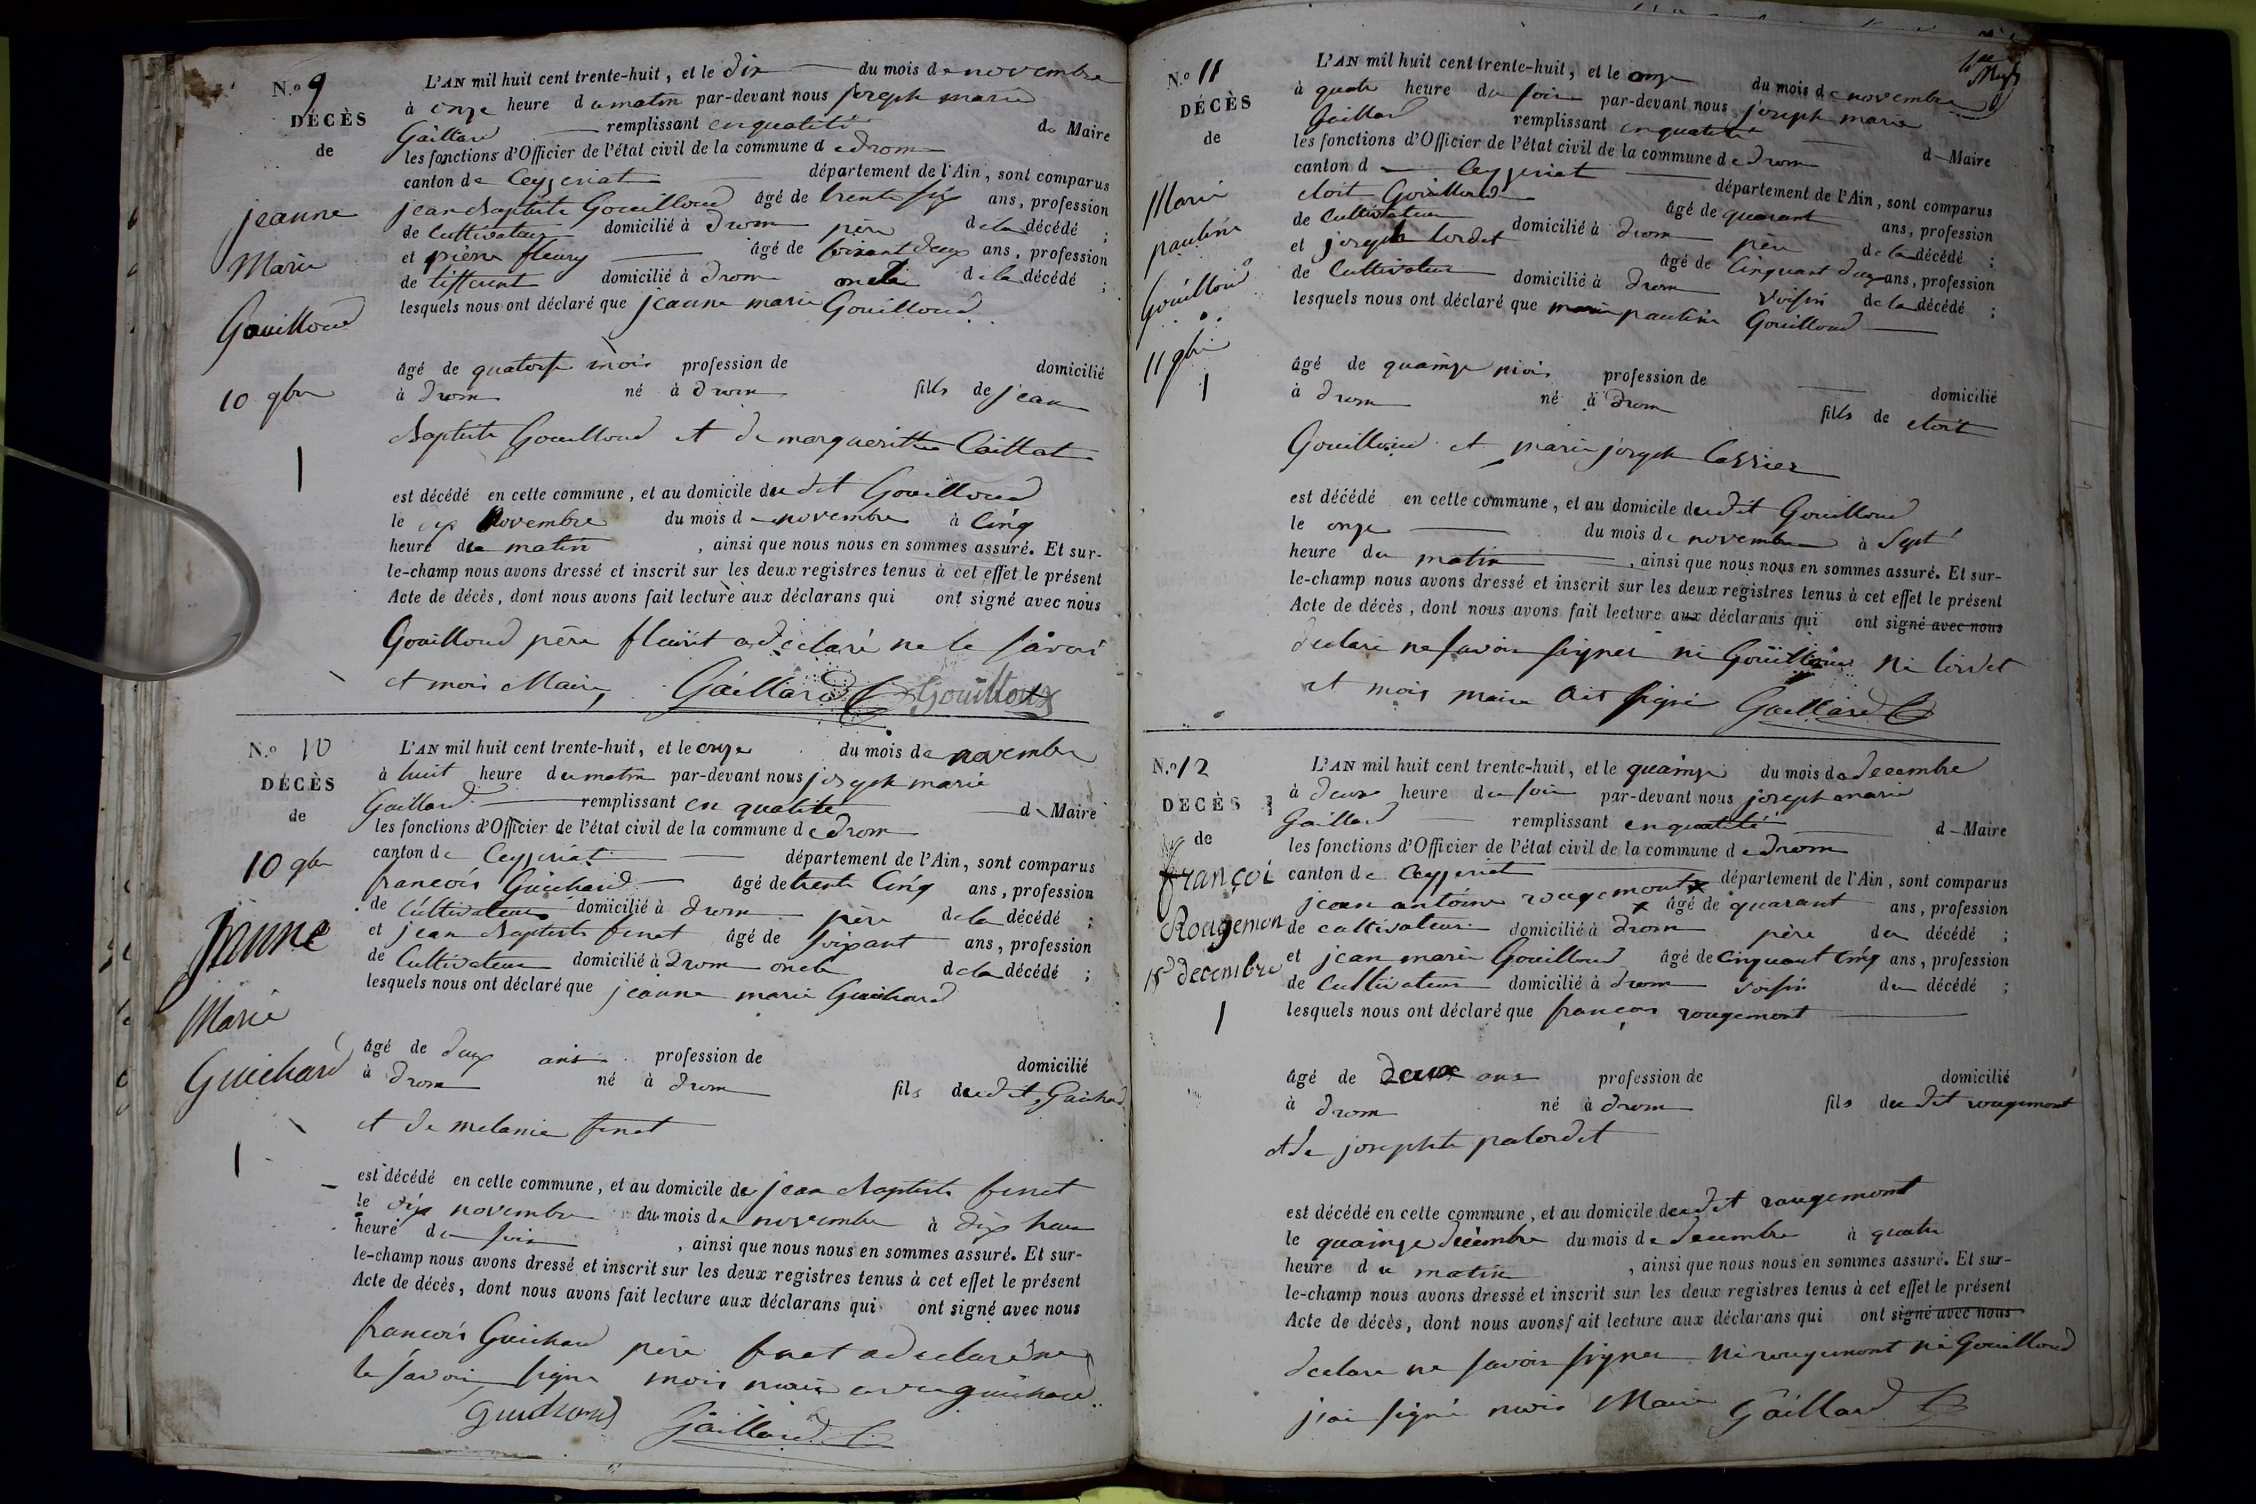 N.o 9
DÉCÈS
de
jeanne
Marie
Gouilloud
10 9bre
L'AN mil huit cent trente-huit, et le dix du mois de novembre
à onze heure du matin par-devant nous joseph marie
Gaillard remplissant en qualité de Maire
les fonctions d'Officier de l'état civil de la commune de drom
canton de Ceyzeriat département de l'Ain, sont comparus
jean Baptiste Gouilloud âgé de trente six ans, profession
de Cultivateur domicilié à drom père de la décédé ;
et pierre fleury âgé de soixant deux ans, profession
de tisserent domicilié à drom oncle de la décédé ;
lesquels nous ont déclaré que jeanne marie Gouilloud
âgé de quatorse mois profession de domicilié
à drom né à drom fills de jean
Baptiste Gouilloud et de margueritte Caillat
est décédé en cette commune, et au domicile du dit Gouilloud
le dix Novembre du mois de novembre à Cinq
heure du matin, ainsi que nous nous en sommes assuré. Et sur-
le-champ nous avons dressé et inscrit sur les deux registres tenus à cet effet le présent
Acte de décès, dont nous avons fait lecture aux déclarans qui ont signé avec nous
Gouilloud père a déclaré ne le savoir
et mois Maire, Gaillard Gouilloud
N.o 10
DÉCÈS
de
10 9bre
Jeanne
Marie
Guichard
L'AN mil huit cent trente-huit, et le onze du mois de novembre
à huit heure du matin par-devant nous joseph marie
Gaillard remplissant en qualité de Maire
les fonctions d'Officier de l'état civil de la commune de drom
canton de Ceyzeriat département de l'Ain, sont comparus
francois Guichard âgé de trente Cinq ans, profession
de Cultivateur domicilié à drom père de la décédé ;
et jean Baptiste finet âgé de soixant ans, profession
de Cultivateur domicilié à drom oncle de la décédé ;
lesquels nous ont déclaré que jeanne marie Guichard
âgé de deux ans profession de domicilié
à drom né à drom fils du dit Guichard
et de melanie finet
est décédé en cette commune, et au domicile de jean Baptiste finet
le dix novembre du mois de novembre à dix heure
heure du soir, ainsi que nous nous en sommes assuré. Et sur-
le-champ nous avons dressé et inscrit sur les deux registres tenus à cet effet le présent
Acte de décès, dont nous avons fait lecture aux déclarans qui ont signé avec nous
francois Guichard père finet a declaré ne
le savoir signe mois maire avec guichard
Guichard Gaillard
N.o 11
DÉCÈS
de
Marie
pauline
Gouilloud
11 9bre
L'AN mil huit cent trente-huit, et le onze du mois de novembre
à quatre heure du soir par-devant nous joseph marie
Gaillard remplissant en qualité d Maire
les fonctions d'Officier de l'état civil de la commune de drom
canton d Ceyzeriat département de l'Ain, sont comparus
Gouilloud âgé de quarant ans, profession
de Cultivateur domicilié à drom père de la décédé ;
et joseph lordet âgé de Cinquant deux ans, profession
de Cultivateur domicilié à drom voisin de la décédé ;
lesquels nous ont déclaré que marie pauline Gouilloud
âgé de quainze mois profession de domicilié
à drom né à drom fills de
Gouilloud et marie joseph
est décédé en cette commune, et au domicile du dit Gouilloud
le onze du mois de novembre à Sept
heure du matin, ainsi que nous nous en sommes assuré. Et sur-
le-champ nous avons dressé et inscrit sur les deux registres tenus à cet effet le présent
Acte de décès, dont nous avons fait lecture aux déclarans qui ont signé avec nous
declaré ne savoir signer ni Gouilloud ni lordet
et mois maire ait signé Gaillard
N.o 12
DÉCÈS
de
françoi
Rougemon
15 decembre
L'AN mil huit cent trente-huit, et le quainze du mois de decembre
à deux heure du soir par-devant nous joseph marie
Gaillard remplissant en qualité d Maire
les fonctions d'Officier de l'état civil de la commune de drom
canton de Ceyzeriat département de l'Ain, sont comparus
jean antoine rougemont âgé de quarant ans, profession
de cultivateur domicilié à drom père du décédé ;
et jean marie Gouilloud âgé de cinquant cinq ans, profession
de Cultivateur domicilié à drom voisin du décédé ;
lesquels nous ont déclaré que françois rougemont
âgé de deux ans profession de domicilié
à drom né à drom fils du dit rougemont
et de josephte palordet
est décédé en cette commune, et au domicile du dit rougemont
le quainze decembre du mois de decembre à quatre
heure du matin, ainsi que nous nous en sommes assuré. Et sur-
le-champ nous avons dressé et inscrit sur les deux registres tenus à cet effet le présent
Acte de décès, dont nous avons fait lecture aux déclarans qui ont signé avec nous
declare ne savoir signer ni rougemont ni Gouilloud
j'ai signé mois Maire Gaillard